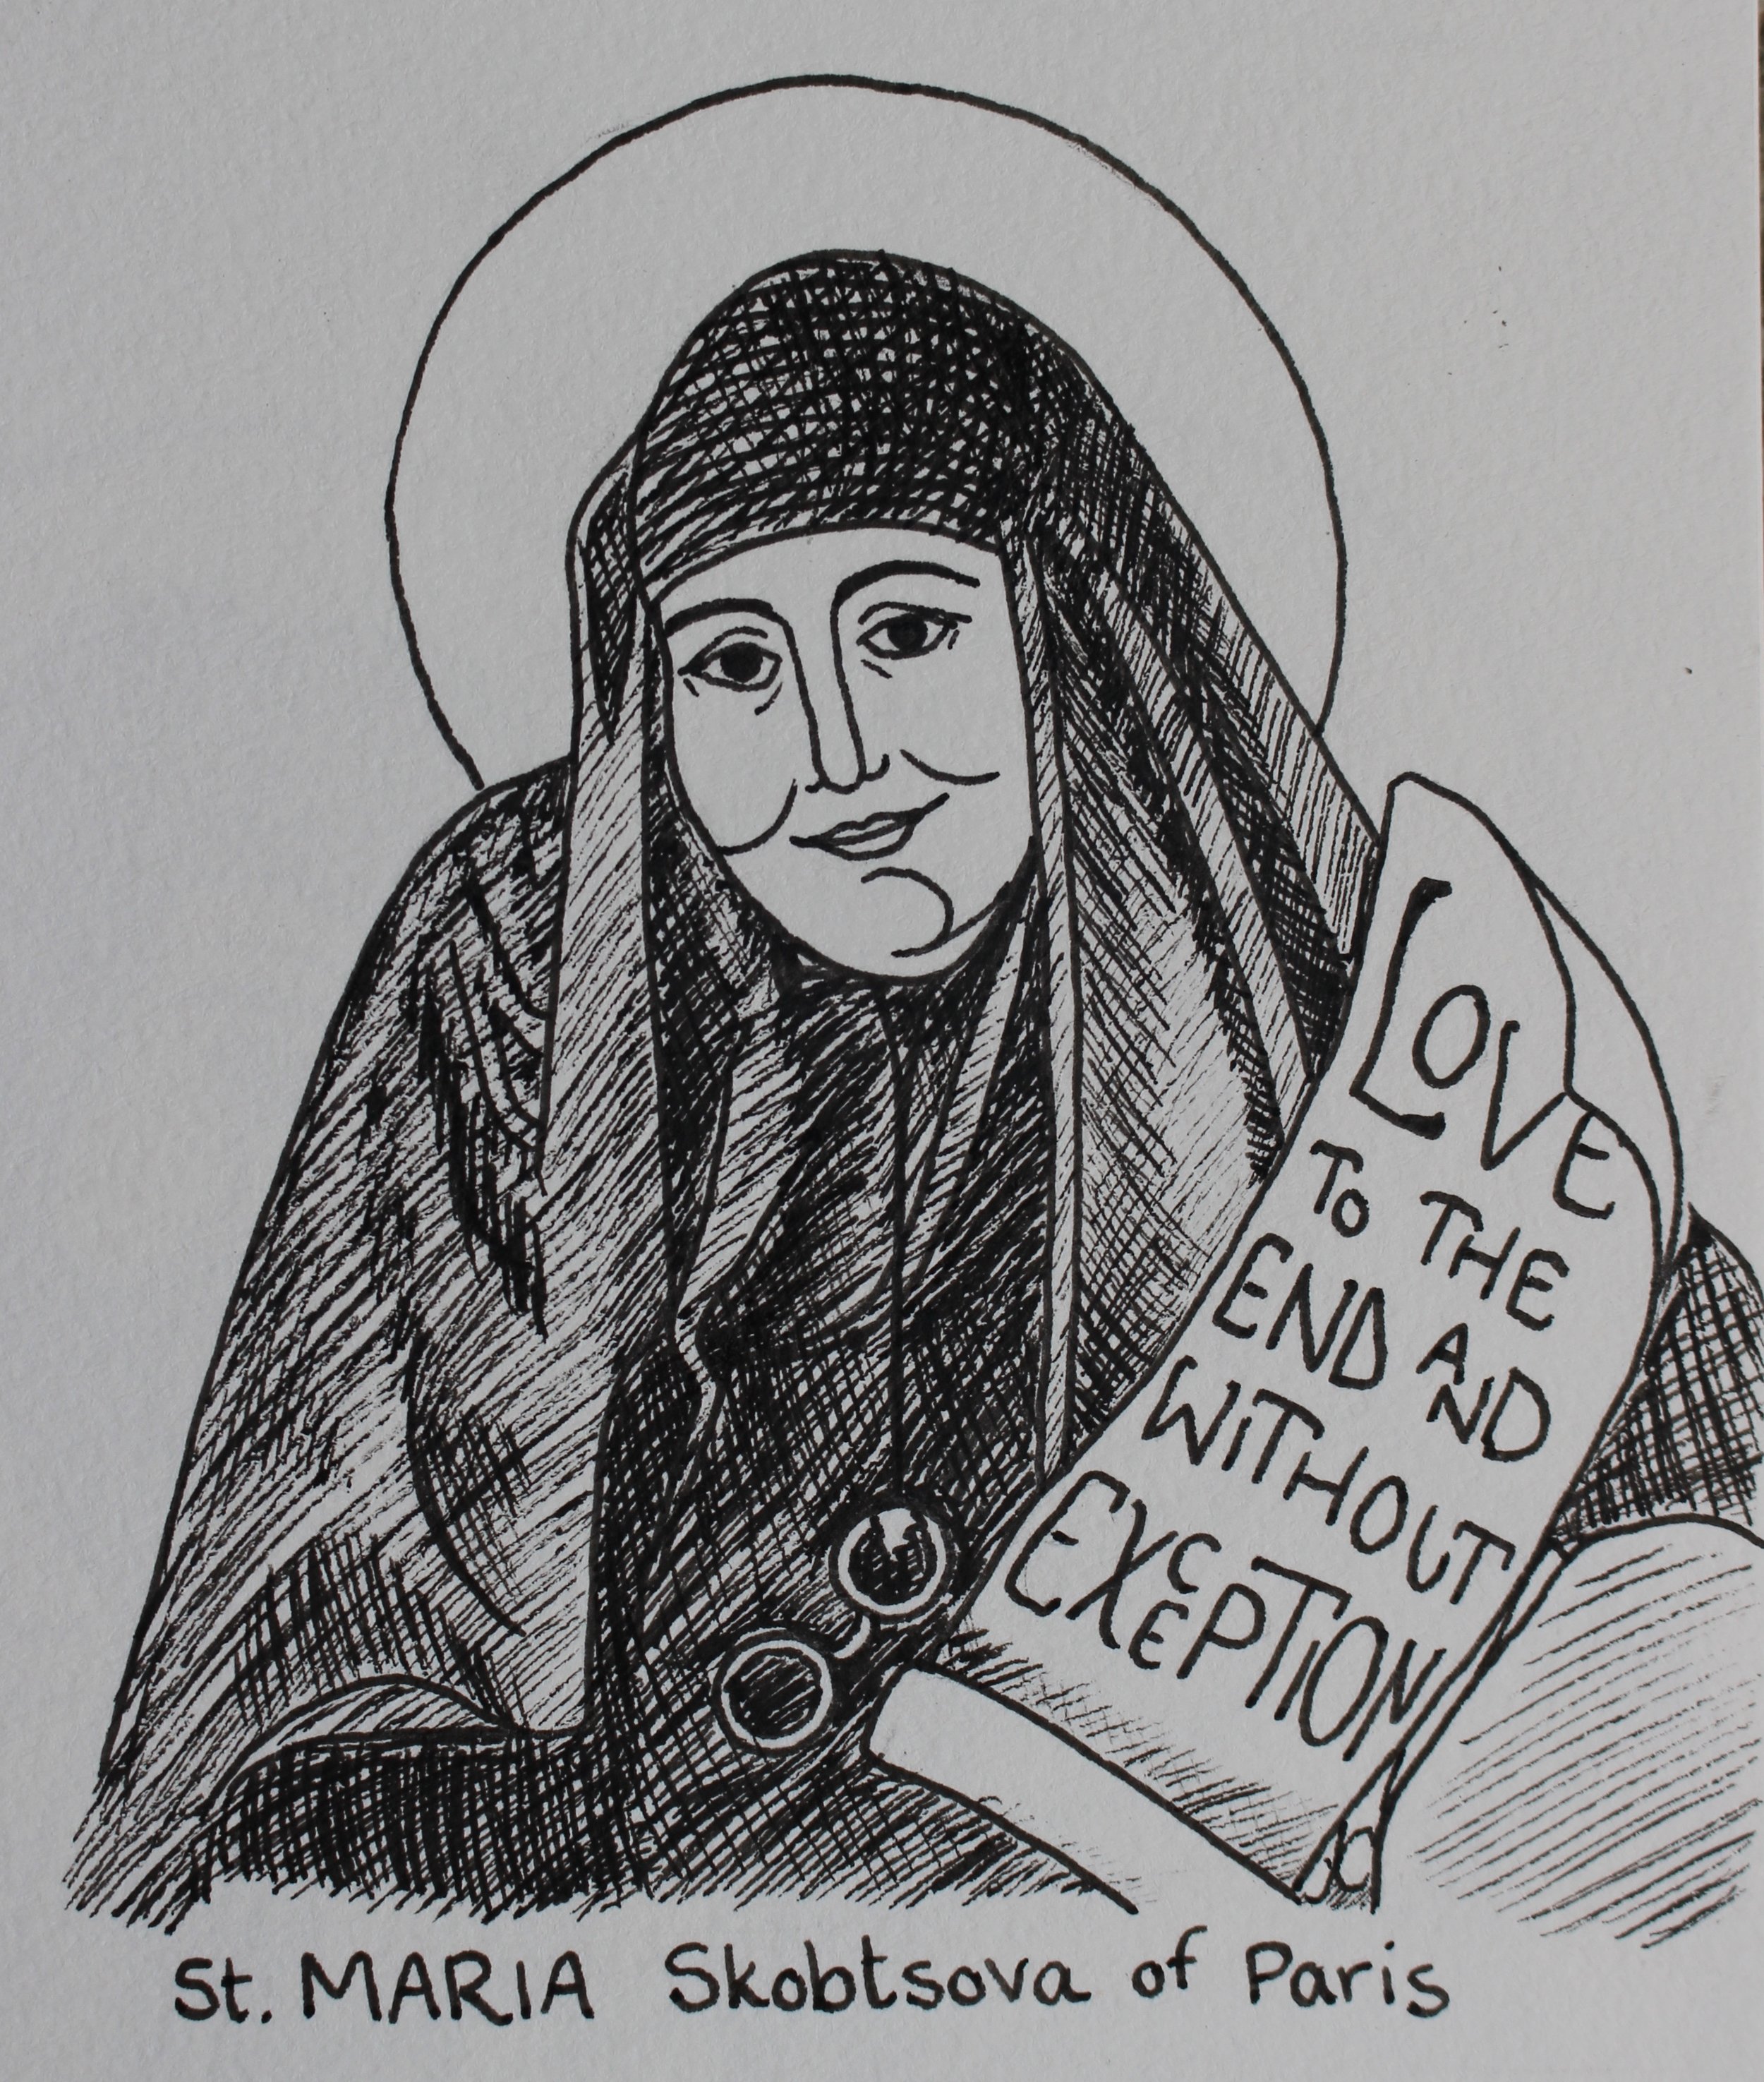 LOVE
TO THE
END AND
WITHOUT
EXCEPTION
St. MARIA Skobtsova of Paris